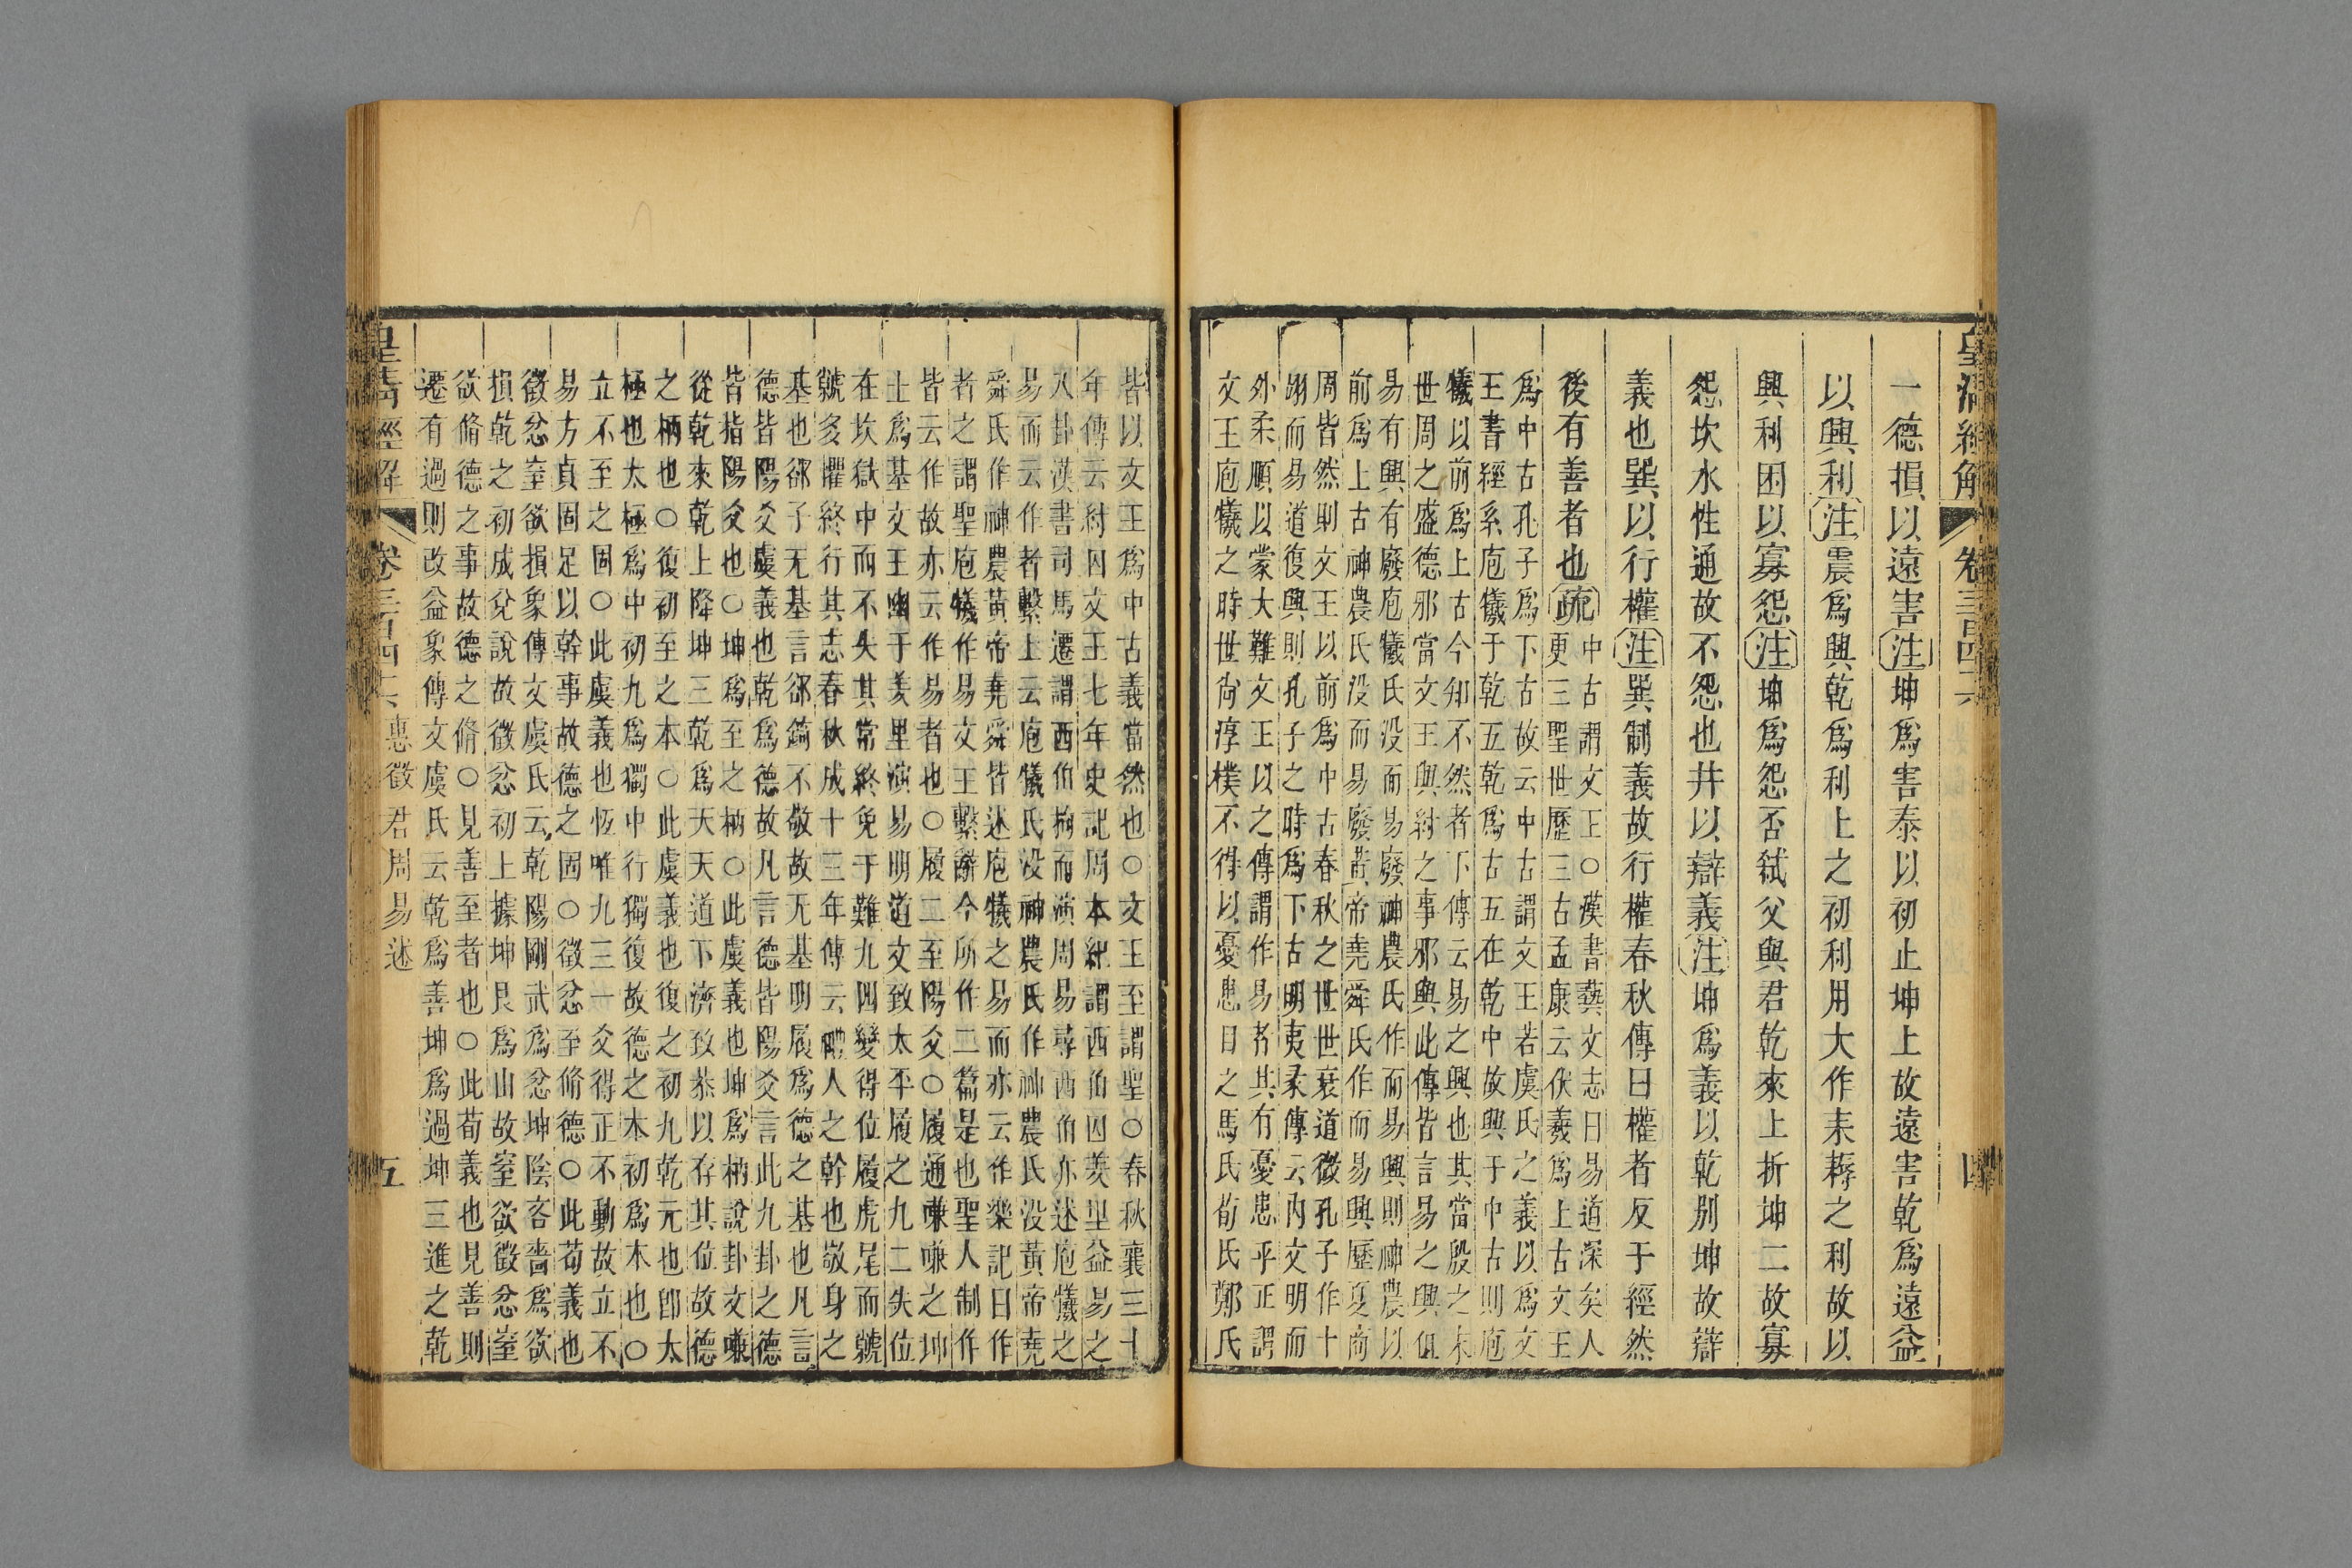 皇清經解 卷三百四十六 四
一德損以遠害注坤爲害泰以初止坤上故遠害乾爲遠益
以興利注震爲興乾爲利上之初利用大作耒耨之利故以
興利困以寡怨注坤爲怨否弒父與君乾來上折坤二故寡
怨坎水性通故不怨也井以辯義注坤爲義以乾別坤故辯
義也巽以行權注巽制義故行權春秋傳曰權者反于經然
後有善者也疏
中古謂文王○漢書藝文志曰易道深矣人
更三聖世歷三古孟康云伏羲爲上古文王
爲中古孔子爲下古故云中古謂文王若虞氏之義以爲文
王書經系庖犧于乾五乾爲古五在乾中故興于中古則庖
犧以前爲上古今知不然者下傳云易之興也其當殷之末
世周之盛德邪當文王與紂之事邪與此傳皆言易之興但
易有興有廢庖犧氏没而易廢神農氏作而易興則神農以
前爲上古神農氏没而易廢黄帝堯舜氏作而易興歷夏商
周皆然則文王以前爲中古春秋之世世衰道微孔子作十
翊而易道復興則孔子之時爲下古明夷彖傳云内文明而
外柔順以蒙大難文王以之傳謂作易者其有憂患乎正謂
文王庖犧之時世尚淳樸不得以憂患目之馬氏荀氏鄭氏
皆以文王爲中古義當然也○文王至謂聖○春秋襄三十
年傳云紂囚文王七年史記周本紀謂西伯囚羑里益易之
八卦漢書司馬遷謂西伯拘而演周易尋西伯亦述庖犧之
易而云作者繫上云庖犧氏没神農氏作神農氏没黄帝堯
舜氏作神農黄帝堯舜皆述庖犧之易而亦云作樂記曰作
者之謂聖庖犧作易文王繫辭今所作二篇是也聖人制作
皆云作故亦云作易者也○履二至陽爻○履通嗛嗛之坤
土爲基文王幽于羑里演易明道文致太平履之九二失位
在坎獄中而不失其常終免于難九四變得位履虎尾而虩
虩多懼終行其志春秋成十三年傳云禮人之幹也敬身之
基也郤子无基言郤錡不敬故无基明履爲德之基也凡言
德皆陽爻虞義也乾爲德故凡言德皆陽爻言此九卦之德
皆指陽爻也○坤爲至之柄○此虞義也坤爲柄說卦文嗛
從乾來乾上降坤三乾爲天天道下濟致恭以存其位故德
之柄也○復初至之本○此虞義也復之初九乾元也卽太
極也太極爲中初九爲獨中行獨復故德之本初爲本也○
立不至之固○此虞義也恆唯九三一爻得正不動故立不
易方貞固足以幹事故德之固○徵忿至脩德○此荀義也
徵忿窒欲損象傳文虞氏云乾陽剛武爲忿坤陰吝嗇爲欲
損乾之初成兌說故徵忿初上據坤艮爲山故窒欲徵忿窒
欲脩德之事故德之脩○見善至者也○此荀義也見善則
遷有過則改益象傳文虞氏云乾爲善坤爲過坤三進之乾
皇清經解 卷三百四十六 惠徵君周易述 五